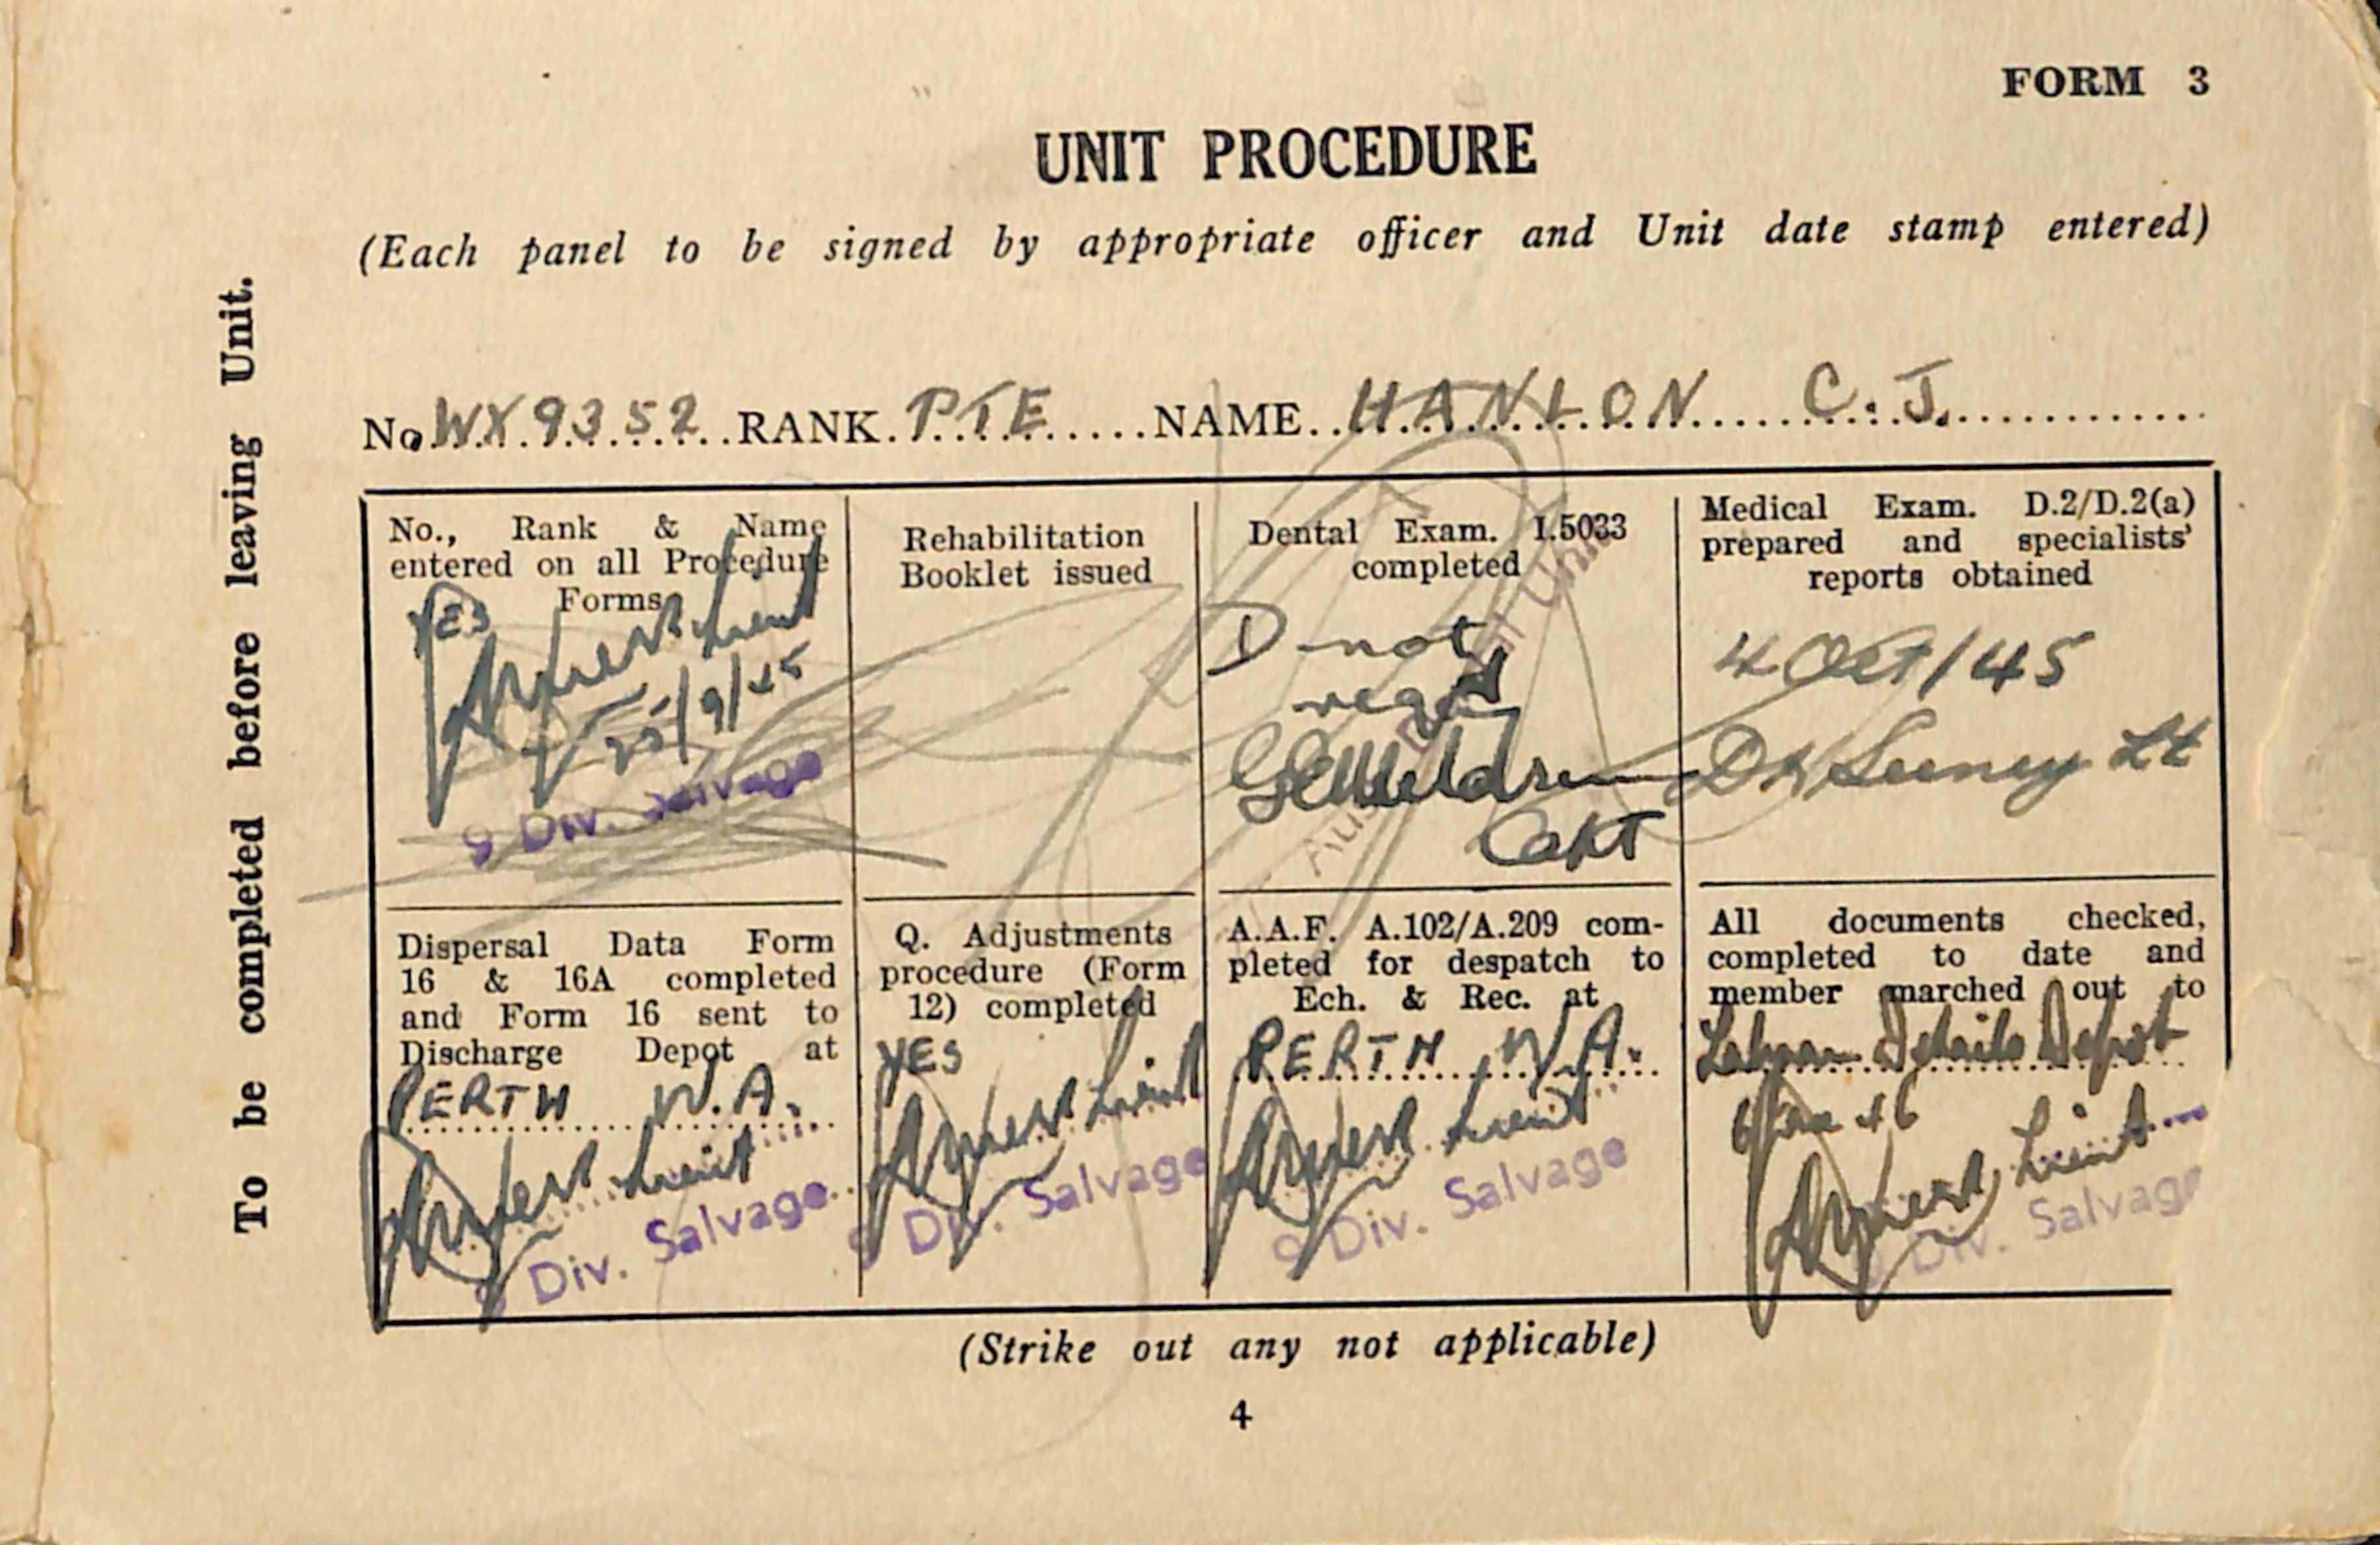 FORM 3
UNIT PROCEDURE
(Each panel to be signed by appropriate officer and Unit date stamp entered)
To be completed before leaving Unit.
No. WX9352 RANK. PTE NAME HANLON C. J.
No., Rank & Name
entered on all Procedure
Forms
YES
Lieut
25/9/45
9 Div. Salvage
Rehabilitation
Booklet issued
Dental Exam. I.5033
completed
D not
reqd
Capt
Aust Dental Unit
Medical Exam. D.2/D.2(a)
prepared and specialists'
reports obtained
4 Oct/45
Lt
Dispersal Data Form
16 & 16A completed
and Form 16 sent to
Discharge Depot at
PERTH W.A.
Lieut
9 Div. Salvage
Q. Adjustments
procedure (Form
12) completed
YES
Lieut
9 Div. Salvage
A.A.F. A.102/A.209 com-
pleted for despatch to
Ech. & Rec. at
PERTH W.A.
Lieut
9 Div. Salvage
All documents checked,
completed to date and
member marched out to
Labuan Details Depot
6 Jan 46
Lieut
9 Div. Salvage
(Strike out any not applicable)
4